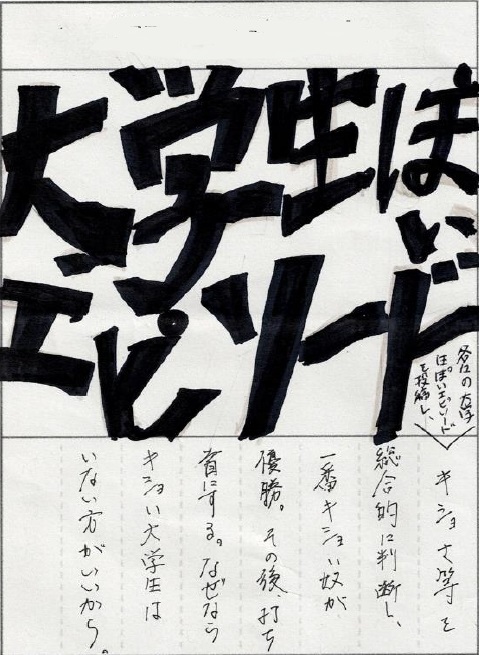 大学生ぽい
エピソード
各々の大学生
ぽいエピソード
を投稿し、
キショさ等を
総合的に判断し、
一番キショい奴が
優勝。その後、打ち
首にする。なぜなら
キショい大学生は
いない方がいいから。